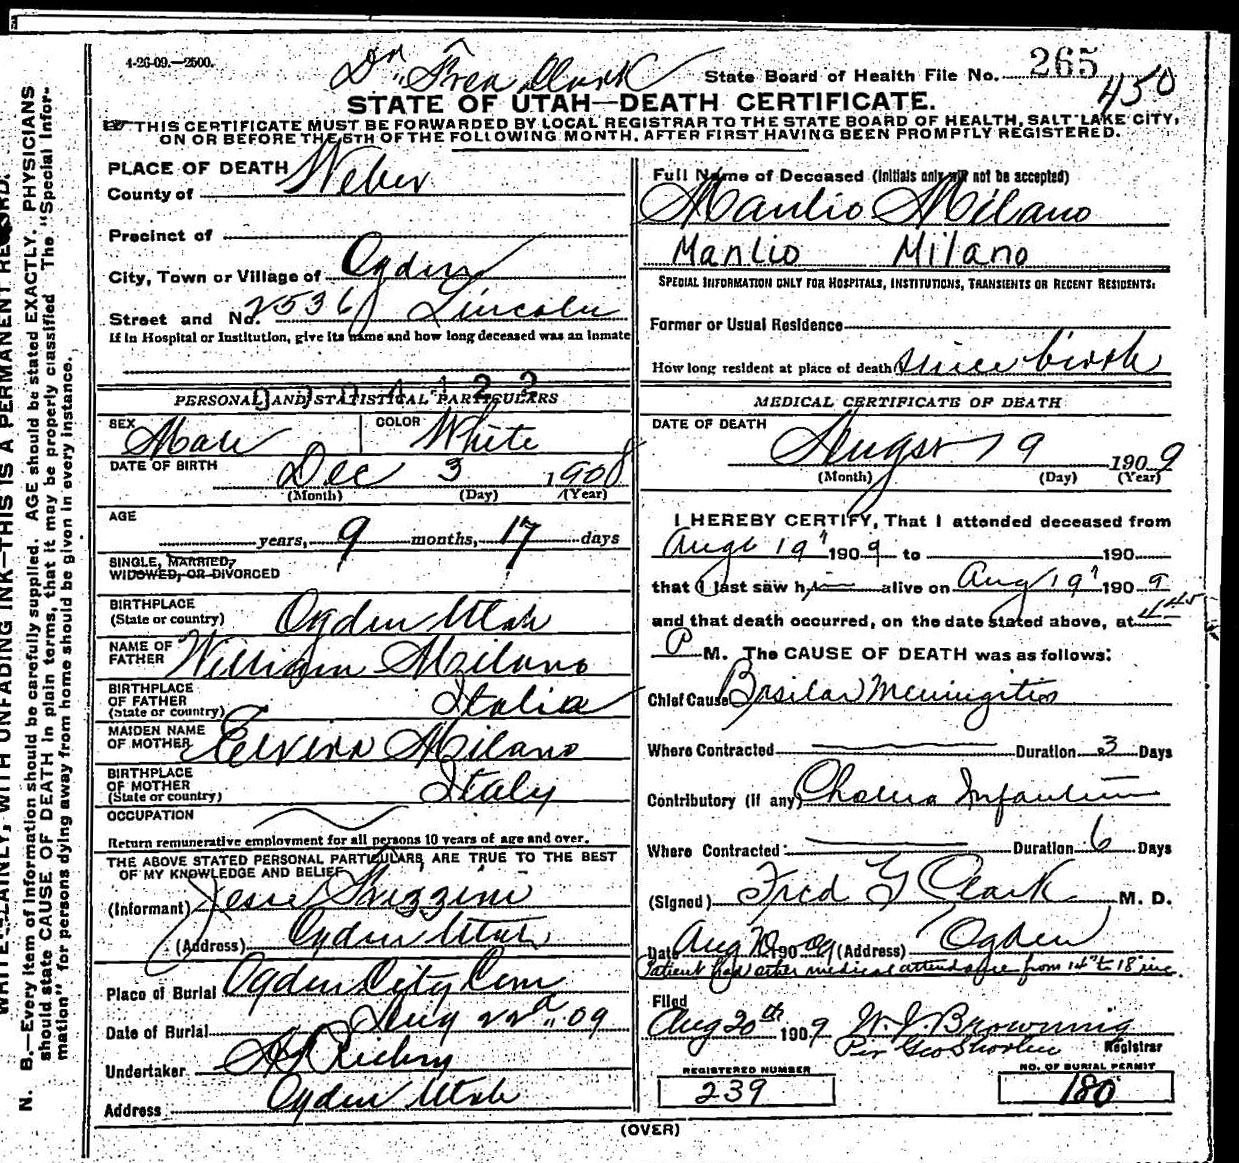 4-26-09.—2500.
Dr. Fred Clark
State Board of Health File No. 265
450
STATE OF UTAH—DEATH CERTIFICATE.
THIS CERTIFICATE MUST BE FORWARDED BY LOCAL REGISTRAR TO THE STATE BOARD OF HEALTH, SALT LAKE CITY,
ON OR BEFORE THE 5TH OF THE FOLLOWING MONTH, AFTER FIRST HAVING BEEN PROMPTLY REGISTERED.
N. B.—Every item of information should be carefully supplied. AGE should be stated EXACTLY. PHYSICIANS
should state CAUSE OF DEATH in plain terms, that it may be properly classified. The "Special Infor-
mation" for persons dying away from home should be given in every instance.
WRITE PLAINLY, WITH UNFADING INK—THIS IS A PERMANENT RECORD.
PLACE OF DEATH
County of Weber
Precinct of
City, Town or Village of Ogden
Street and No. 2536 Lincoln
If in Hospital or Institution, give its name and how long deceased was an inmate
PERSONAL AND STATISTICAL PARTICULARS
SEX Male COLOR White
DATE OF BIRTH Dec 3 1908
(Month) (Day) (Year)
AGE
years, 9 months, 17 days
SINGLE, MARRIED,
WIDOWED, OR DIVORCED
BIRTHPLACE
(State or country) Ogden Utah
NAME OF
FATHER William Milano
BIRTHPLACE
OF FATHER
(State or country) Italia
MAIDEN NAME
OF MOTHER Elvira Milano
BIRTHPLACE
OF MOTHER
(State or country) Italy
OCCUPATION
Return remunerative employment for all persons 10 years of age and over.
THE ABOVE STATED PERSONAL PARTICULARS, ARE TRUE TO THE BEST
OF MY KNOWLEDGE AND BELIEF
(Informant)
(Address) Ogden Utah
Place of Burial Ogden City Cem
Date of Burial Aug 22d 09
Undertaker
Address Ogden Utah
Full Name of Deceased (Initials only will not be accepted)
Manlio Milano
Manlio Milano
SPECIAL INFORMATION ONLY FOR HOSPITALS, INSTITUTIONS, TRANSIENTS OR RECENT RESIDENTS:
Former or Usual Residence
How long resident at place of death since birth
MEDICAL CERTIFICATE OF DEATH
DATE OF DEATH
August 19 1909
(Month) (Day) (Year)
I HEREBY CERTIFY, That I attended deceased from
Aug 19" 1909 to 190
that I last saw him alive on Aug 19" 1909
and that death occurred, on the date stated above, at 4 45
P M. The CAUSE OF DEATH was as follows:
Chief Cause Basilar Meningitis
Where Contracted Duration 3 Days
Contributory (if any) Cholera Infantum
Where Contracted: Duration 6 Days
(Signed) Fred G Clark M. D.
Date Aug 20 1909 (Address) Ogden
Patient had other medical attendance from 14" to 18" inc.
Filed
Aug 20th 1909 W. J. Browning
Per Geo Shorten Registrar
REGISTERED NUMBER
239
NO. OF BURIAL PERMIT
180
(OVER)